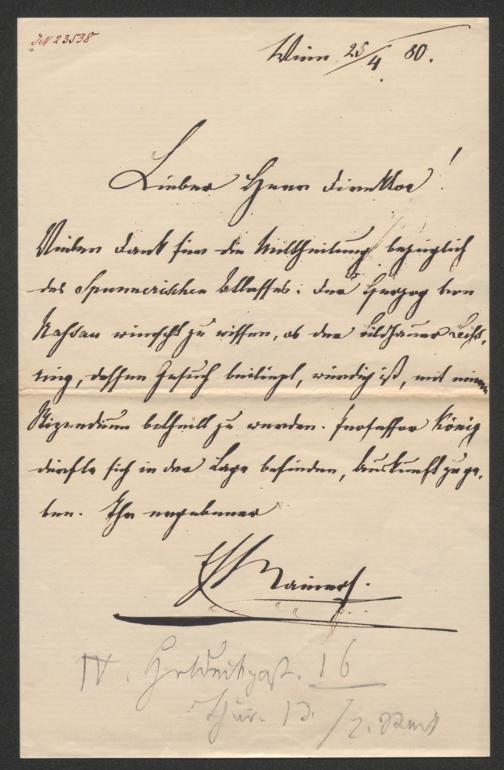 JN 23538
Wien 25/4. 80.
Lieber Herr Direktor!
Vielen Dank für die Mittheilung bezüglich
des Spannerischen Erlasses: der Herzog von
Nassau wünscht zu wissen, ob der Bildhauer
ring, dessen Gesuch beiliegt, würdig ist, mit einem
Stipendium betheilt zu werden. Professor König
dürfte sich in der Lage befinden, Auskunft zu ge,
ben. Ihr ergebener
IV. 16